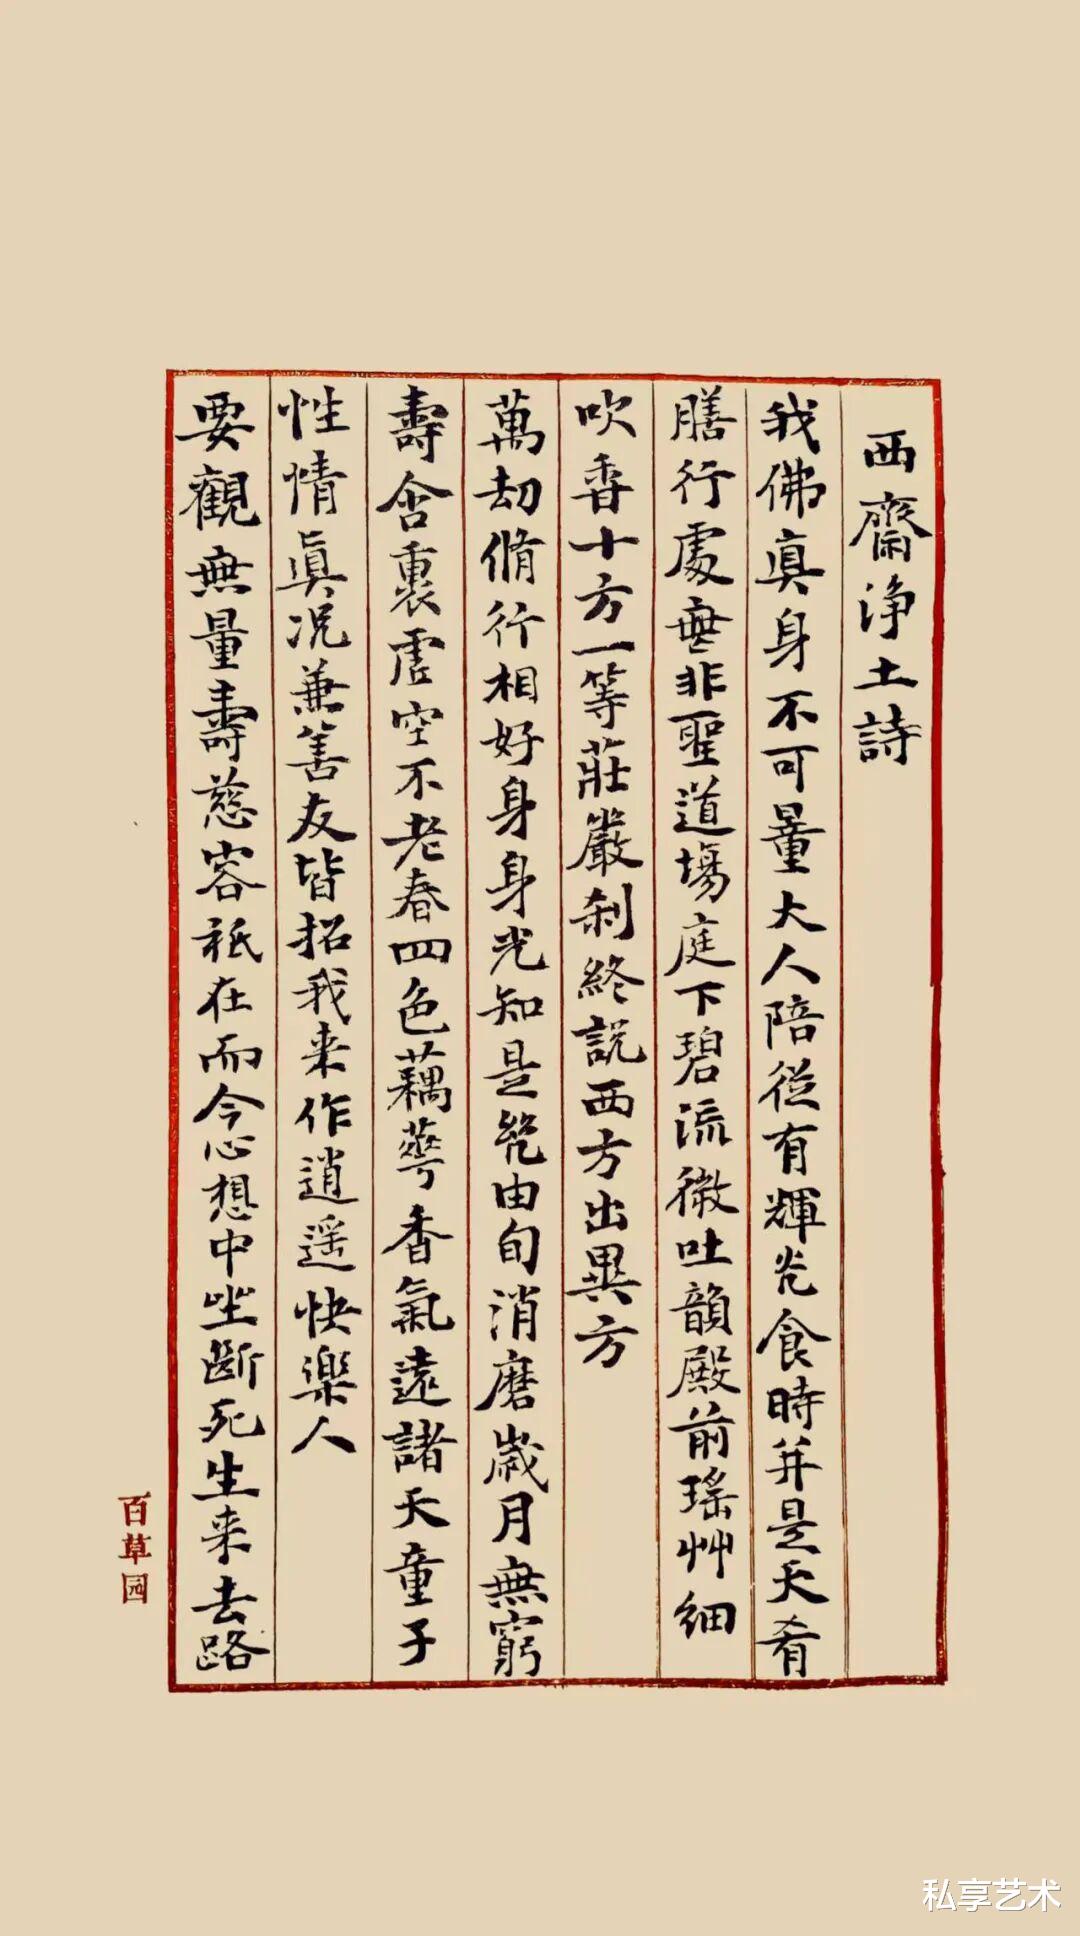 西齋淨土詩
我佛真身不可量大人陪從有輝光食時并是天肴
膳行處無非聖道場庭下碧流微吐韻殿前瑤艸細
吹香十方一等莊嚴刹終說西方出異方
萬劫脩行相好身身光知是幾由旬消磨歲月無窮
壽含裏虛空不老春四色藕蕚香氣遠諸天童子
性情真况兼善友皆招我来作逍遥快樂人
要觀無量壽慈容祇在而今心想中坐斷死生来去路
百草园
私享艺术